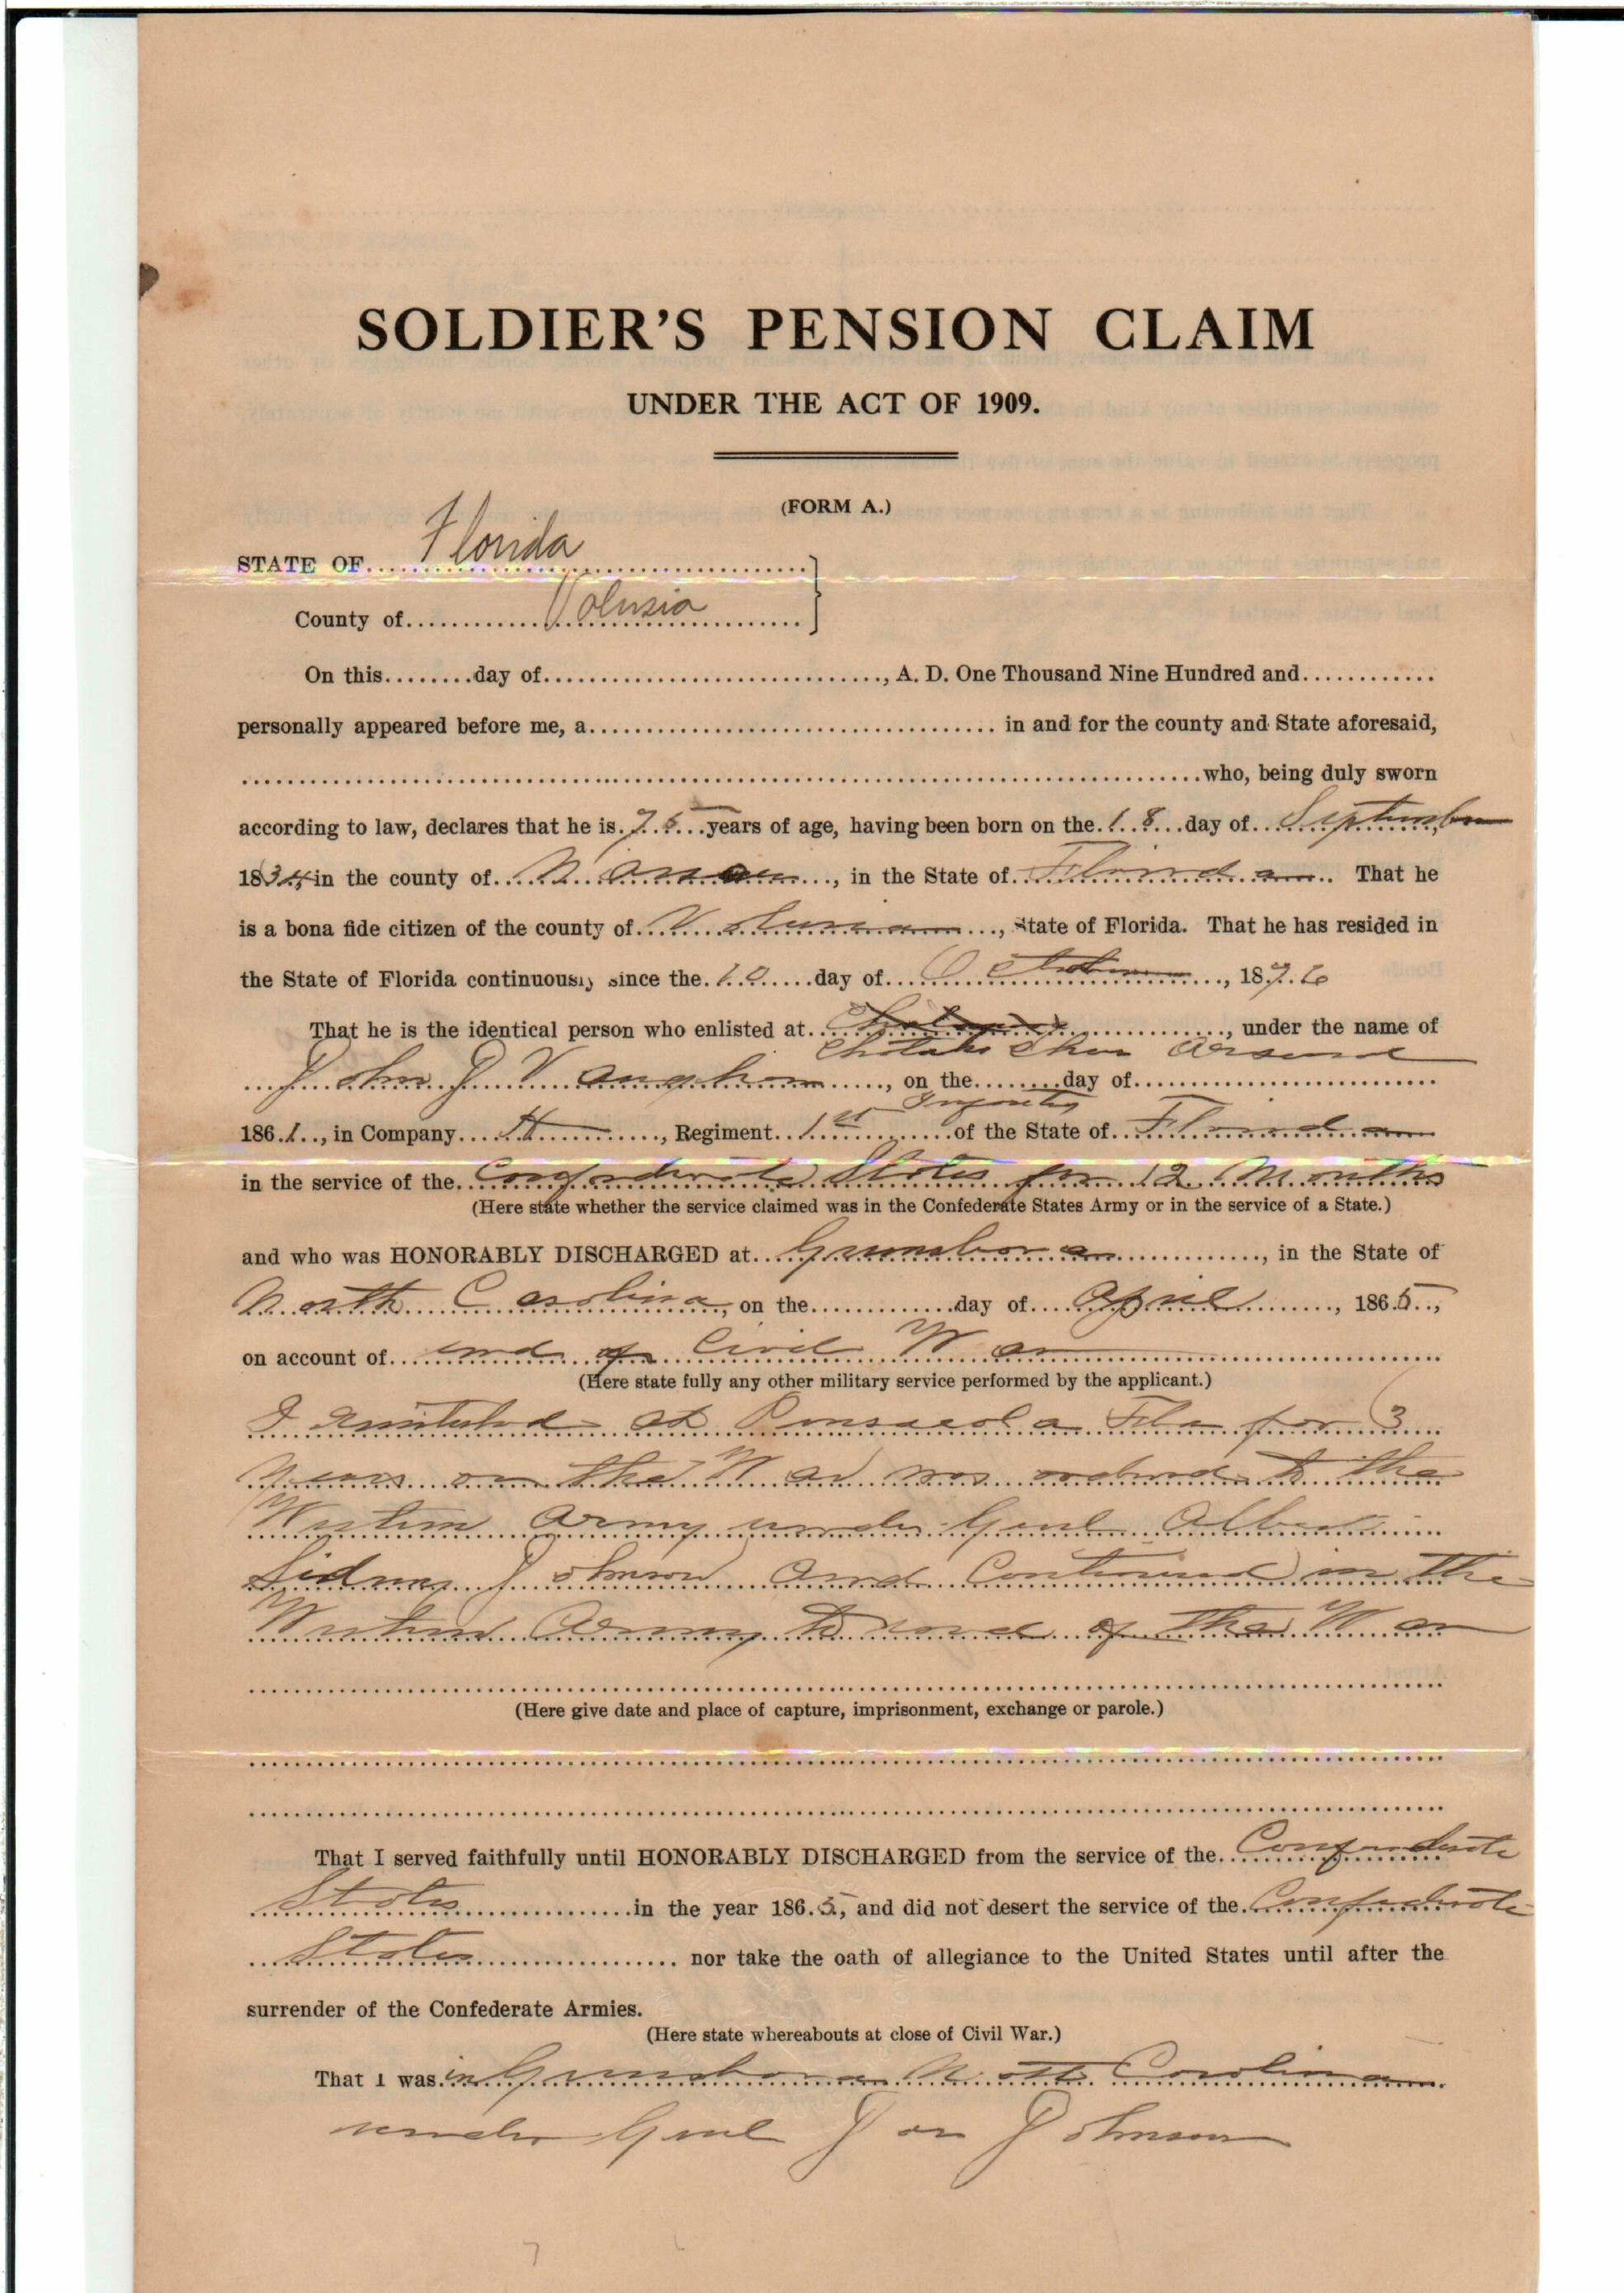 SOLDIER'S PENSION CLAIM
UNDER THE ACT OF 1909.
(FORM A.)
STATE OF Florida
County of Volusia
On this ........ day of ............................, A. D. One Thousand Nine Hundred and ............
personally appeared before me, a .................................... in and for the county and State aforesaid,
.................................................................................... who, being duly sworn
according to law, declares that he is 75 years of age, having been born on the 18 day of September
1834 in the county of , in the State of Florida. That he
is a bona fide citizen of the county of Volusia, State of Florida. That he has resided in
the State of Florida continuously since the 10 day of October, 1876
That he is the identical person who enlisted at , under the name of
John J Vaughan, on the ........ day of ............................
1861, in Company H, Regiment 1st Infantry of the State of Florida
in the service of the Confederate States for 12 Months
(Here state whether the service claimed was in the Confederate States Army or in the service of a State.)
and who was HONORABLY DISCHARGED at Greensboro, in the State of
North Carolina, on the ............ day of April, 1865,
on account of end of Civil War
(Here state fully any other military service performed by the applicant.)
I at Pensacola Fla for 3
Years or the War was ordered to the
Western Army under Genl Albert
Sidney Johnson and Continued in the
Western Army to end of the War
(Here give date and place of capture, imprisonment, exchange or parole.)
That I served faithfully until HONORABLY DISCHARGED from the service of the Confederate
States in the year 1865, and did not desert the service of the Confederate
States nor take the oath of allegiance to the United States until after the
surrender of the Confederate Armies.
(Here state whereabouts at close of Civil War.)
That I was in Greensboro North Carolina
under Genl Joe Johnson